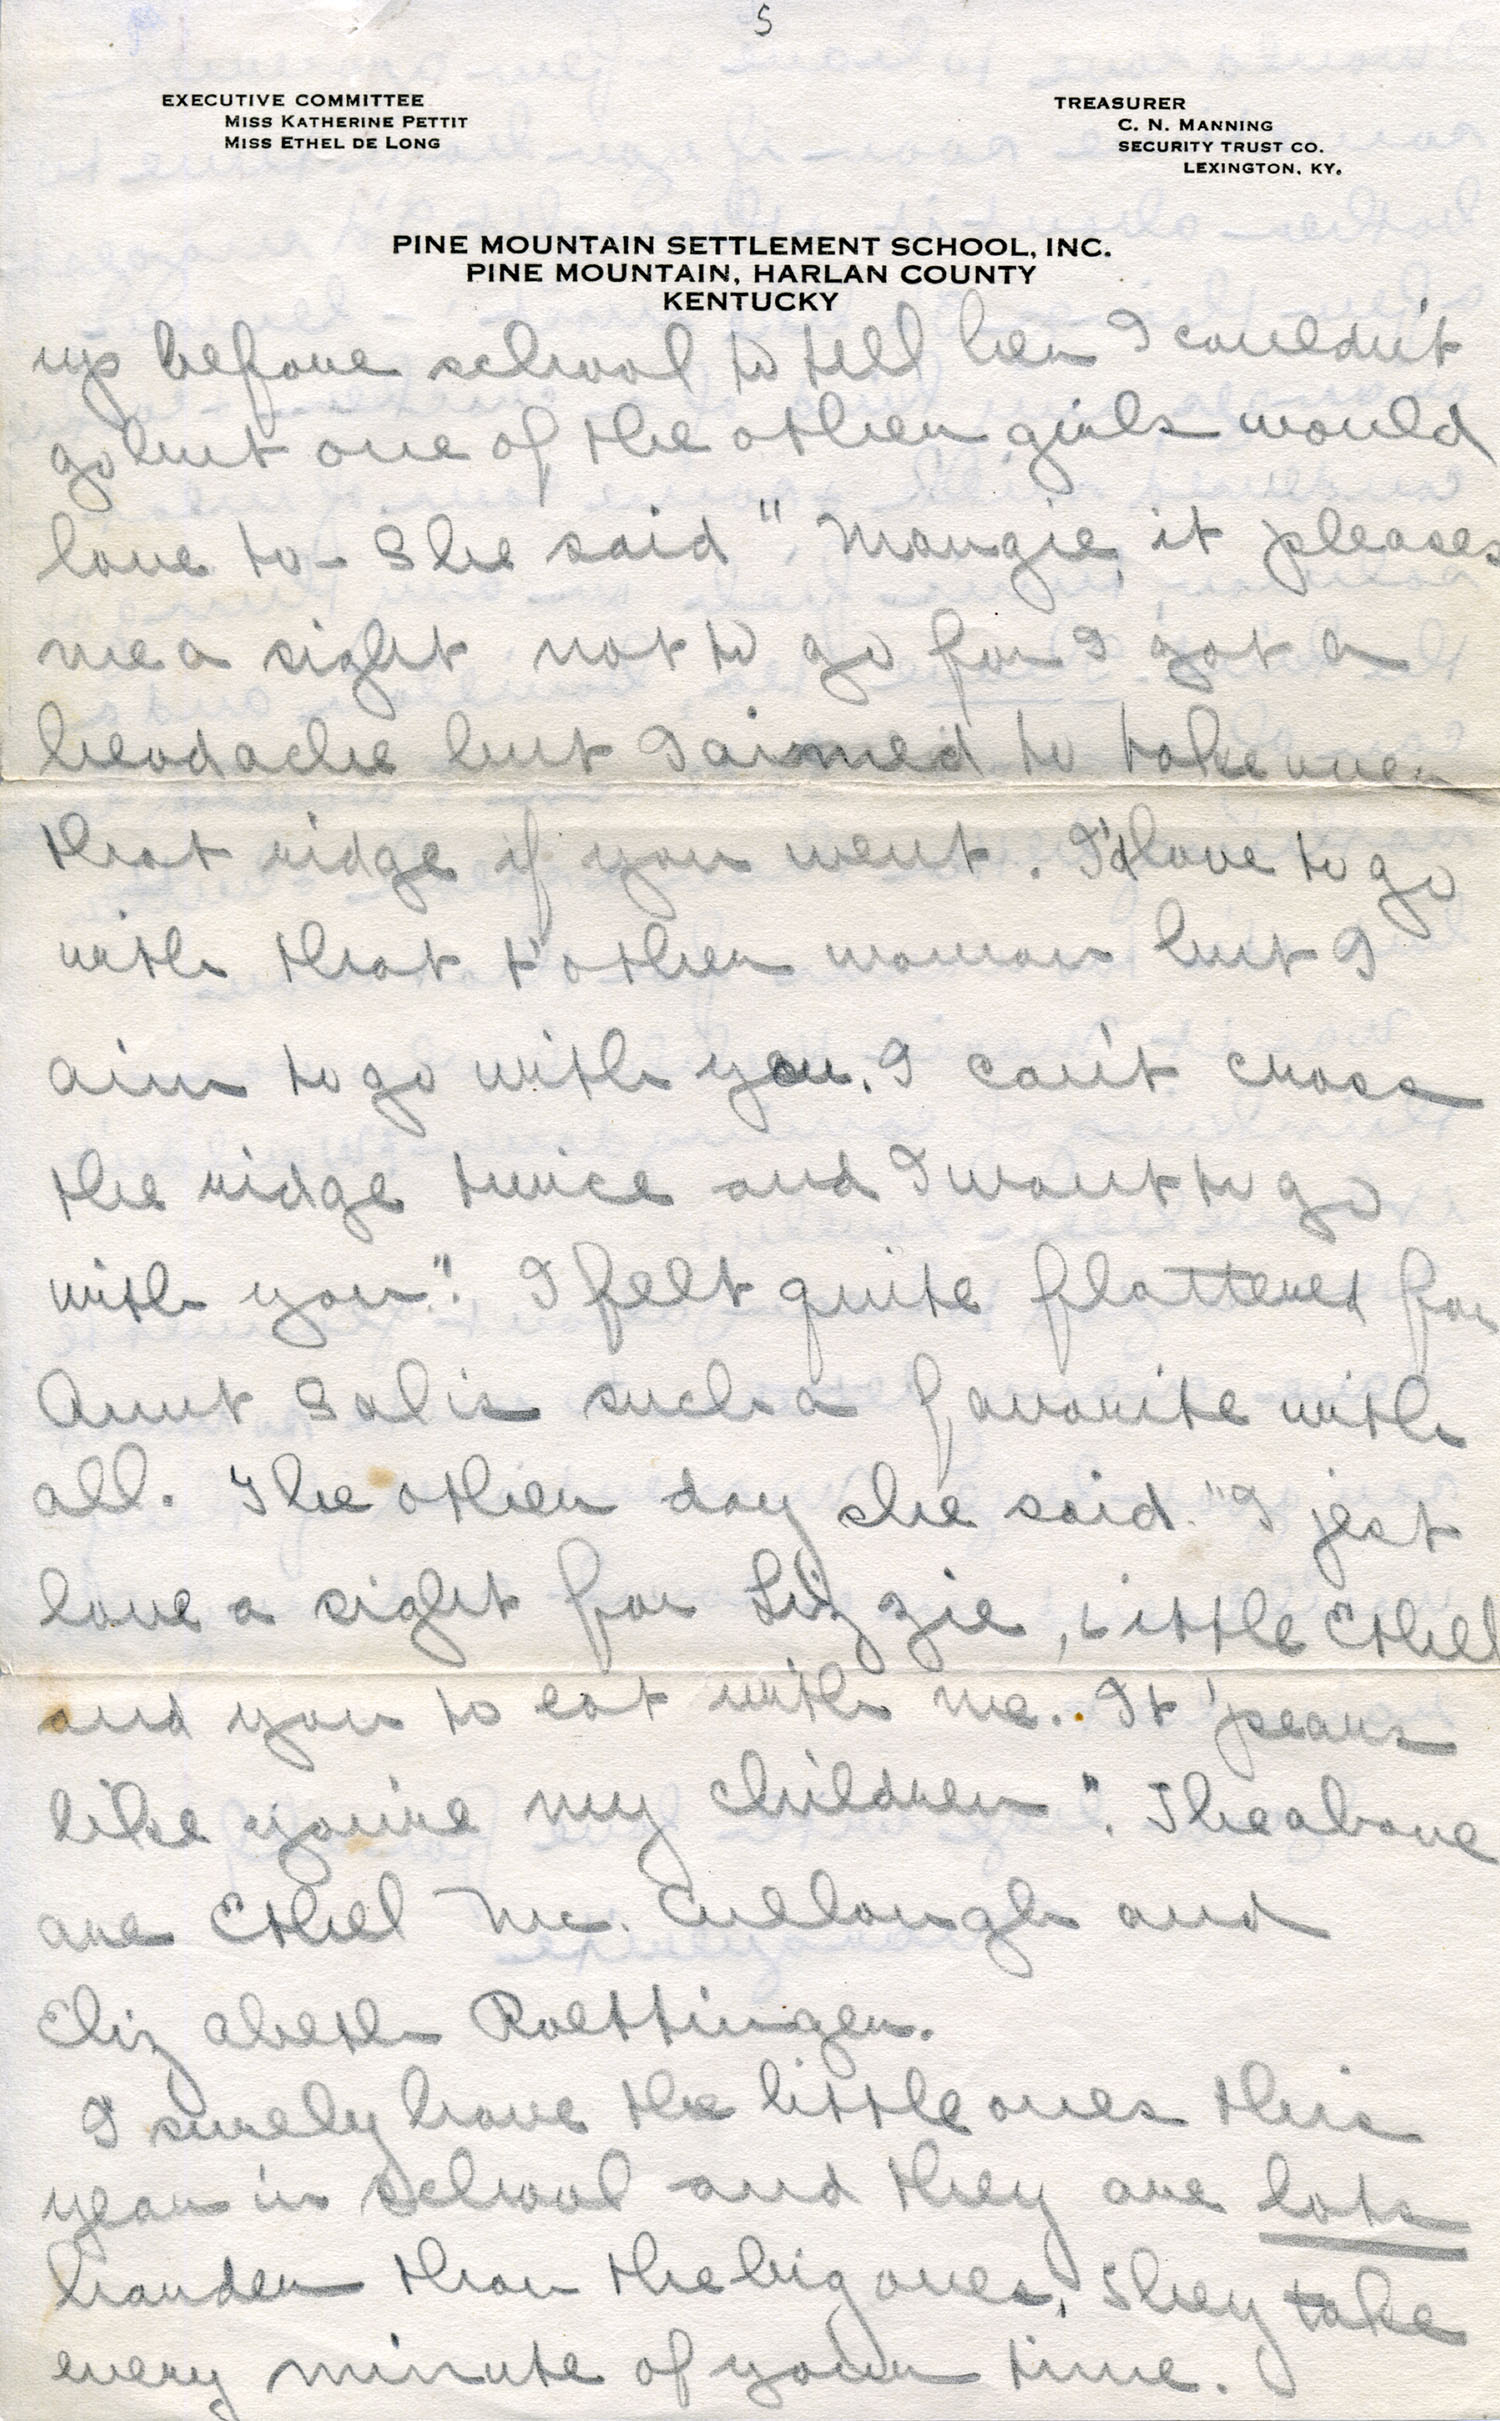 5
EXECUTIVE COMMITTEE
MISS KATHERINE PETTIT
MISS ETHEL DE LONG
TREASURER
C. N. MANNING
SECURITY TRUST CO.
LEXINGTON, KY.
PINE MOUNTAIN SETTLEMENT SCHOOL, INC.
PINE MOUNTAIN, HARLAN COUNTY
KENTUCKY
up before school to tell her I couldn't
go but one of the other girls would
love to - She said "Margie, it pleases
me a sight not to go for I got a
headache but I aimed to take over
that ridge if you went. I'd love to go
with that t'other woman but I
aim to go with you. I can't cross
the ridge twice and I want to go
with you". I felt quite flattered for
Aunt Sal is such a favorite with
all. The other day she said "I jest
love a sight for Lizzie, Little Ethel
and you to eat with me. It 'pears
like you're my children". The above
are Ethel Mc. Cullough and
Elizabeth Roettinger.
I surely have the little ones this
year in school and they are lots
harder than the big ones. They take
every minute of your time.